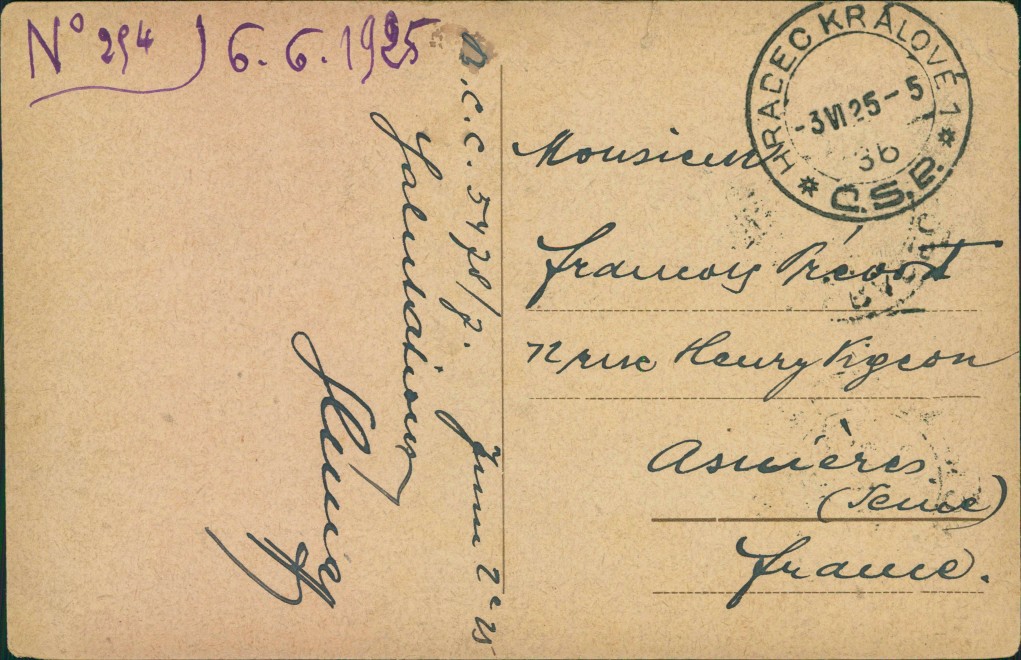 N° 254) 6.6.1925
HRADEC KRÁLOVÉ 1
-3 VI 25-5
3b
Č.S.P.
C.C. 5478/7. June 2e 25
Salutations
Monsieur
Francois Prévost
rue Henry Vigeon
Asnières
(Seine)
France.